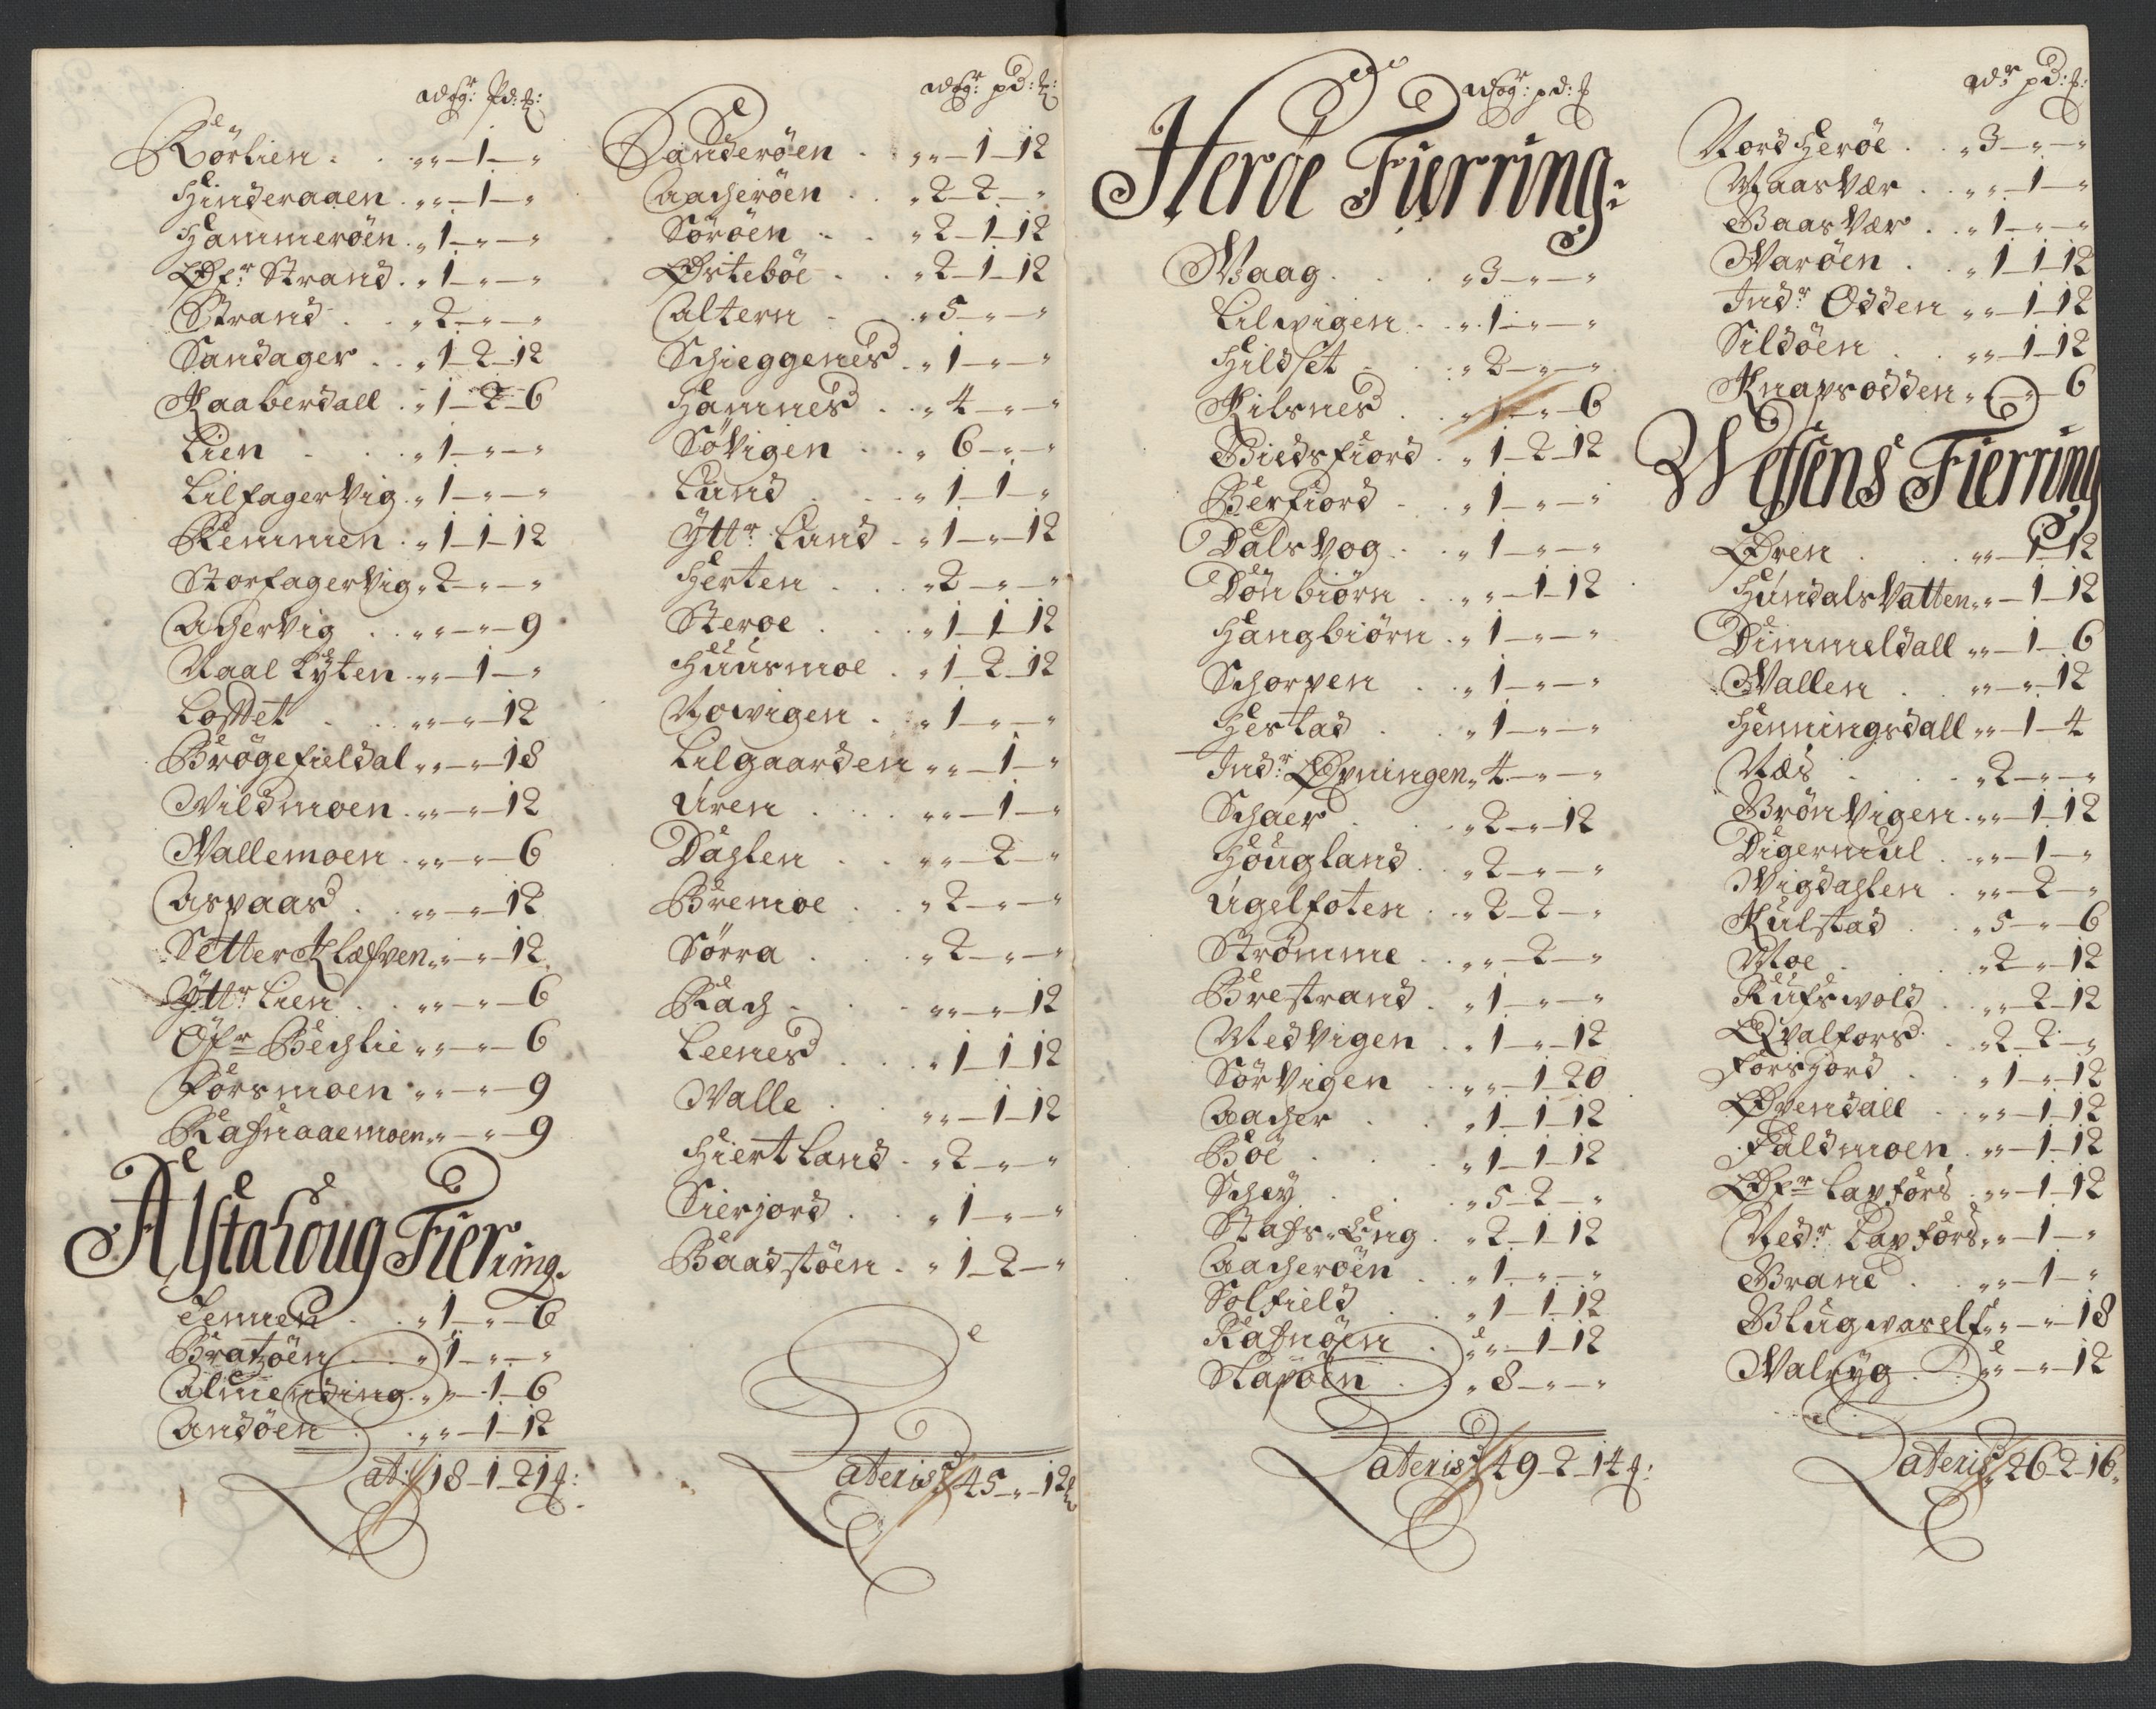 Wog: Pd: ℔:
Rörlien . . „ „ — 1 — „
Hinderaaen . „ „ — 1 — „
Hammeröen . „ 1 — „ — „
Öfr Strand . „ 1 — „ — „
Strand . „ 2 — „ — „
Sandager . . „ 1 — 2 — 12
Kaaberdall . „ 1 — 2 — 6
Lien . . „ 1 — „ — „
Lilfagervig . „ 1 — „ — „
Remmen . „ 1 — 1 — 12
Storfagervig „ 2 — „ — „
Achervig . . „ „ — „ — 9
Naal Kyten . „ „ — 1 — „
Losset . . „ „ — „ — 12
Brögefieldal „ „ — „ — 18
Vildmoen . „ „ — „ — 12
Vallemoen . „ „ — „ — 6
Aspaas . „ „ — „ — 12
Setter Klefven „ „ — „ — 12
Yttr Lien . . „ „ — „ — 6
Öfr Bechlie „ „ — „ — 6
Forsmoen „ „ — „ — 9
Rafnaaemoen „ „ — „ — 9
Alstahoug Fiering.
Tennen . „ 1 — „ — 6
Bratzöen . „ 1 — „ — „
Almending . „ „ — 1 — 6
Andöen . „ „ — 1 — 12
Lat: 18 — 1 — 21 ℔:
Wog: pd: ℔:
Sanderöen . „ „ — 1 — 12
Aacheröen . „ 2 — 2 — „
Söröen . . „ 2 — 1 — 12
Östeböe . „ 2 — 1 — 12
Altern . „ 5 — „ — „
Schieggenes . „ 1 — „ — „
Hamnes . „ 4 — „ — „
SöVigen . . „ 6 — „ — „
Lund . . „ 1 — 1 — „
Yttr Lund . „ 1 — „ — 12
Herten . . „ 2 — „ — „
Steroe . . „ 1 — 1 — 12
Huusmoe . „ 1 — 2 — 12
Novigen . „ 1 — „ — „
Lilgaarden „ „ — 1 — „
Uren . . „ „ — 1 — „
Dahlen . . „ „ — 2 — „
Bremoe . „ 2 — „ — „
Sörra . . „ 2 — „ — „
Rach . . „ „ — „ — 12
Leenes . . „ 1 — 1 — 12
Valle . . „ „ — 1 — 12
Hiertland . „ 2 — „ — „
Sierjord . „ 1 — „ — „
Baadstöen . „ 1 — 2 — „
Lateris 45 — „ — 12 ℔
Wog: pd: ℔
Heröe Fierring:
Waag . . „ 3 — „ — „
Lilvigen . „ 1 — „ — „
Hildset . . „ 2 — „ — „
Kilsnes . „ 1 — „ — 6
Biedsfiord . „ 1 — 2 — 12
Berfiord . „ 1 — „ — „
Dalsvog . . „ 1 — „ — „
Dönbiörn . „ „ — 1 — 12
Hangbiörn . „ 1 — „ — „
Schorpen . „ 1 — „ — „
Hestad . „ 1 — „ — „
Indr Øpningen „ 4 — „ — „
Schaer . „ 2 — „ — 12
Hougland . „ 2 — „ — „
Ugelfoten . „ 2 — 2 — „
Strömme . . „ „ — 2 — „
Brestrand . „ 1 — „ — „
Medvigen . „ 1 — „ — 12
Sörvigen . „ „ — 1 — 20
Aacher . „ 1 — 1 — 12
Böe . . „ 1 — 1 — 12
Schey . . „ 5 — 2 — „
Stafs-Eng . „ 2 — 1 — 12
Aacheröen . „ 1 — „ — „
Solfield . „ 1 — 1 — 12
Rafnöen . „ „ — 1 — 12
Slapöen . „ 8 — „ — „
Lateris 49 — 2 — 14 ℔:
Wr pd: ℔:
Nord Heröe . „ 3 — „ — „
Maasvær . „ „ — 1 — „
Baasvær . „ 1 — „ — „
Varöen . „ 1 — 1 — 12
Indr Odden „ „ — 1 — 12
Sildöen . . „ „ — 1 — 12
Knapsodden „ „ — „ — 6
Wefsens Fierring
Ören . . „ „ — 1 — 12
Hundalsvatten „ „ — 1 — 12
Dimmeldall „ „ — 1 — 6
Vallen . . „ „ — „ — 12
Henningsdall „ „ — 1 — 4
Næs . . „ 2 — „ — „
Brönvigen . „ „ — 1 — 12
Digermul . „ „ — 1 — „
Vigdahlen . „ „ — 2 — „
Kulstad . . „ 5 — „ — 6
Moe . . „ 2 — „ — 12
Rufsvold . „ „ — 2 — 12
Qvalfors . „ 2 — 2 — „
Forsjord . „ 1 — „ — 12
Øvendall . „ „ — 1 — 12
Faldmoen . „ „ — 1 — 12
Öfr Lapfors . „ „ — 1 — 12
Nedr Lapfors „ „ — 1 — „
Brane . . „ „ — 1 — „
Blugvaself „ „ — „ — 18
Valryg . „ „ — „ — 12
Lateris 26 — 2 — 16 „